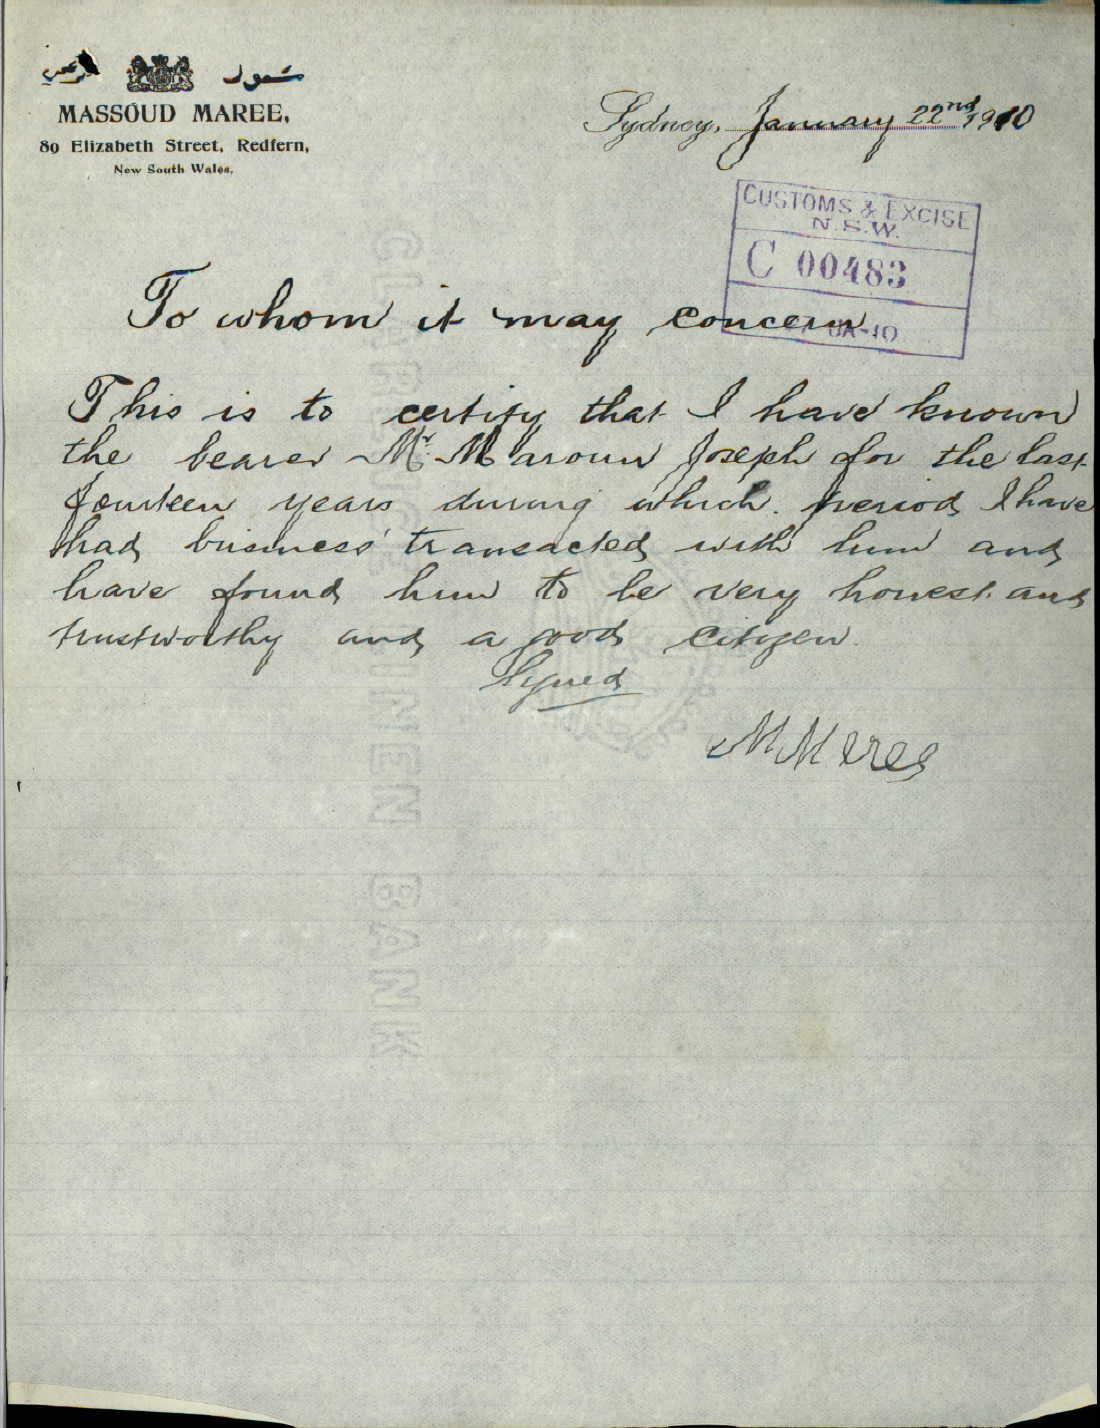 MASSOUD MAREE,
80 Elizabeth Street, Redfern,
New South Wales.
Sydney, January 22nd 1910
CUSTOMS & EXCISE
N.S.W.
C 00483
To whom it may concern
This is to certify that I have known
the bearer Mr. Maroun Joseph for the last
fourteen years during which period I have
had business transacted with him and
have found him to be very honest and
trustworthy and a good citizen.
Signed
M Meree